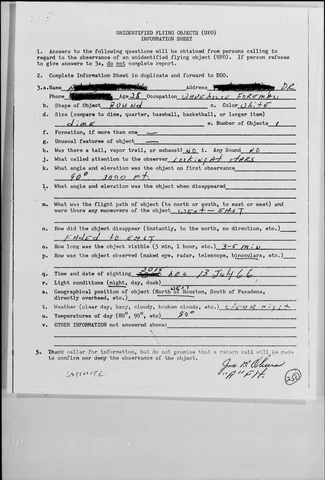 UNIDENTIFIED FLYING OBJECTS (UFO)
INFORMATION SHEET
1. Answers to the following questions will be obtained from persons calling in
regard to the observance of an unidentified flying object (UFO). If person refuses
to give answers to 3a, do not complete report.
2. Complete Information Sheet in duplicate and forward to EDO.
3.a. Name Address DR
Phone Age 28 Occupation WAREHOUSE FOREMAN
b. Shape of Object ROUND c. Color WHITE
d. Size (compare to dime, quarter, baseball, basketball, or larger item)
dime e. Number of Objects 1
f. Formation, if more than one —
g. Unusual features of object —
h. Was there a tail, vapor trail, or exhaust? NO i. Any Sound NO
j. What called attention to the observer LOOKING AT STARS
k. What angle and elevation the object on first observance
90° 3000 FT.
l. What angle and elevation the object when disappeared
m. What was the flight path of object (to north or south, to east or west) and
were there any maneuvers of the object WEST - EAST
n. How did the object disappear (instantly, to the north, no direction, etc.)
FADED TO EAST
o. How long was the object visible (5 min, 1 hour, etc.) 3-5 min
p. How was the object observed (naked eye, radar, telescope, binoculars, etc.)
q. Time and date of sighting 13 July 66
r. Light conditions (night, day, dusk)
s. Geographical position of object (North of Houston, South of Pasadena,
WEST
directly overhead, etc.)
t. Weather (clear day, hazy, cloudy, broken clouds, etc.) clear night
u. Temperatures of day (80°, 90°, etc) 80°
v. OTHER INFORMATION not answered above:
5. Thank caller for information, but do not promise that a return call will be made
to confirm nor deny the observance of the object.
SATELLITE